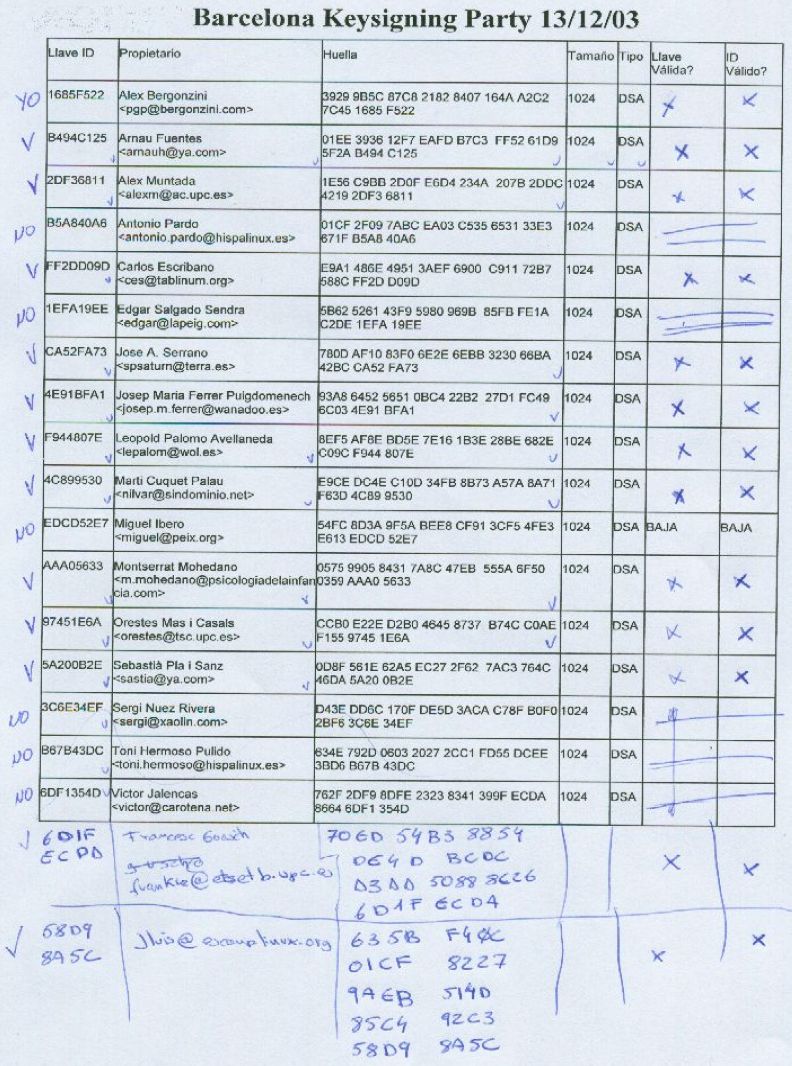 Barcelona Keysigning Party 13/12/03
Llave ID Propietario Huella Tamaño Tipo Llave Válida? ID Válido?
YO 1685F522 Alex Bergonzini 3929 9B5C 87C8 2182 8407 164A A2C2 1024 DSA x x
<pgp@bergonzini.com> 7C45 1685 F522
✓ B494C125 Arnau Fuentes 01EE 3936 12F7 EAFD B7C3 FF52 61D9 1024 DSA x x
<arnauh@ya.com> 5F2A B494 C125
✓ 2DF36811 Alex Muntada 1E56 C9BB 2D0F E6D4 234A 207B 2DDC 1024 DSA x x
<alexm@ac.upc.es> 4219 2DF3 6811
NO B5A840A6 Antonio Pardo 01CF 2F09 7ABC EA03 C535 6531 33E3 1024 DSA
<antonio.pardo@hispalinux.es> 671F B5A8 40A6
✓ FF2DD09D Carlos Escribano E9A1 486E 4951 3AEF 6900 C911 72B7 1024 DSA x x
<ces@tablinum.org> 588C FF2D D09D
NO 1EFA19EE Edgar Salgado Sendra 5B62 5261 43F9 5980 969B 85FB FE1A 1024 DSA
<edgar@lapeig.com> C2DE 1EFA 19EE
✓ CA52FA73 Jose A. Serrano 780D AF10 83F0 6E2E 6EBB 3230 66BA 1024 DSA x x
<spsaturn@terra.es> 42BC CA52 FA73
✓ 4E91BFA1 Josep Maria Ferrer Puigdomenech 93A8 6452 5651 0BC4 22B2 27D1 FC49 1024 DSA x x
<josep.m.ferrer@wanadoo.es> 6C03 4E91 BFA1
✓ F944807E Leopold Palomo Avellaneda 8EF5 AF8E BD5E 7E16 1B3E 28BE 682E 1024 DSA x x
<lepalom@wol.es> C09C F944 807E
✓ 4C899530 Marti Cuquet Palau E9CE DC4E C10D 34FB 8B73 A57A 8A71 1024 DSA x x
<nilvar@sindominio.net> F63D 4C89 9530
NO EDCD52E7 Miguel Ibero 54FC 8D3A 9F5A BEE8 CF91 3CF5 4FE3 1024 DSA BAJA BAJA
<miguel@peix.org> E613 EDCD 52E7
✓ AAA05633 Montserrat Mohedano 0575 9905 8431 7A8C 47EB 555A 6F50 1024 DSA x x
<m.mohedano@psicologiadelainfan 0359 AAA0 5633
cia.com>
✓ 97451E6A Orestes Mas i Casals CCB0 E22E D2B0 4645 8737 B74C C0AE 1024 DSA x x
<orestes@tsc.upc.es> F155 9745 1E6A
✓ 5A200B2E Sebastià Pla i Sanz 0D8F 561E 62A5 EC27 2F62 7AC3 764C 1024 DSA x x
<sastia@ya.com> 46DA 5A20 0B2E
NO 3C6E34EF Sergi Nuez Rivera D43E DD6C 170F DE5D 3ACA C78F B0F0 1024 DSA
<sergi@xaolin.com> 2BF6 3C6E 34EF
NO B67B43DC Toni Hermoso Pulido 634E 792D 0603 2027 2CC1 FD55 DCEE 1024 DSA
<toni.hermoso@hispalinux.es> 3BD6 B67B 43DC
NO 6DF1354D Victor Jalencas 762F 2DF9 8DFE 2323 8341 399F ECDA 1024 DSA
<victor@carotena.net> 8664 6DF1 354D
✓ 6D1F Francesc 706D 54B3 8854 x x
ECDA DE4D BCDC
frankie@etsetb.upc.es D3DD 5088 8C26
6D1F ECDA
✓ 58D9 635B F40C x x
8A5C 01CF 8227
9AEB 514D
85C4 92C3
58D9 8A5C